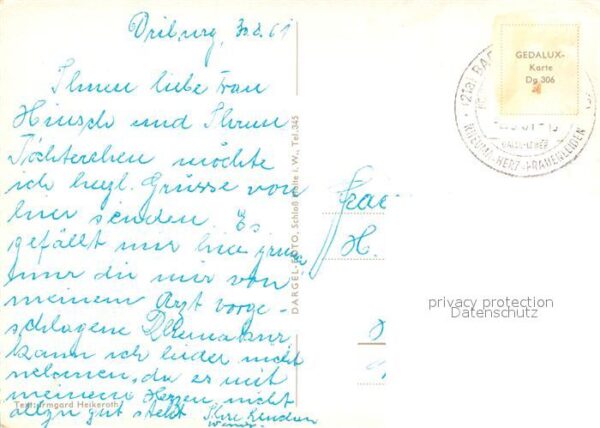 Driburg, 30.8.61
Ihnen liebe Frau
Hinsch und Ihrem
Töchterchen möchte
ich herzl. Grüsse von
hier senden. Es
gefällt mir hier
nur die mir von
meinem Arzt vorge-
schlagene
kann ich leider nicht
nehmen, da es mit
meinem Herzen nicht
allzu gut steht
Ihre
Text: Irmgard Heikeroth
DARGEL-FOTO, Schloß Holte i. W., Tel. 345
Frau
H.
GEDALUX-
Karte
Dg 306
(21a) BAD
RHEUMA-HERZ-FRAUENLEIDEN
privacy protection
Datenschutz